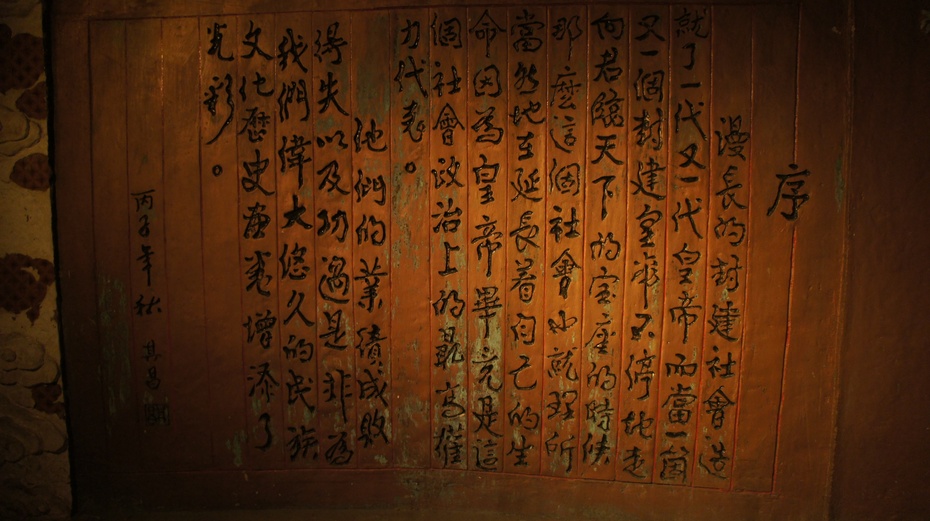 序
漫長的封建社會造
就了一代又一代皇帝而當一箇
又一個封建皇帝不停地走
向君臨天下的宝座的時候
那麼這個社會也就理所
當然地在延長着自己的生
命因為皇帝畢竟是這
個社會政治上的最高權
力代表。
他們的業績成敗
得失以及功過是非為
我們偉大悠久的民族
文化歷史畫卷增添了
光彩。
丙子年秋 其昌